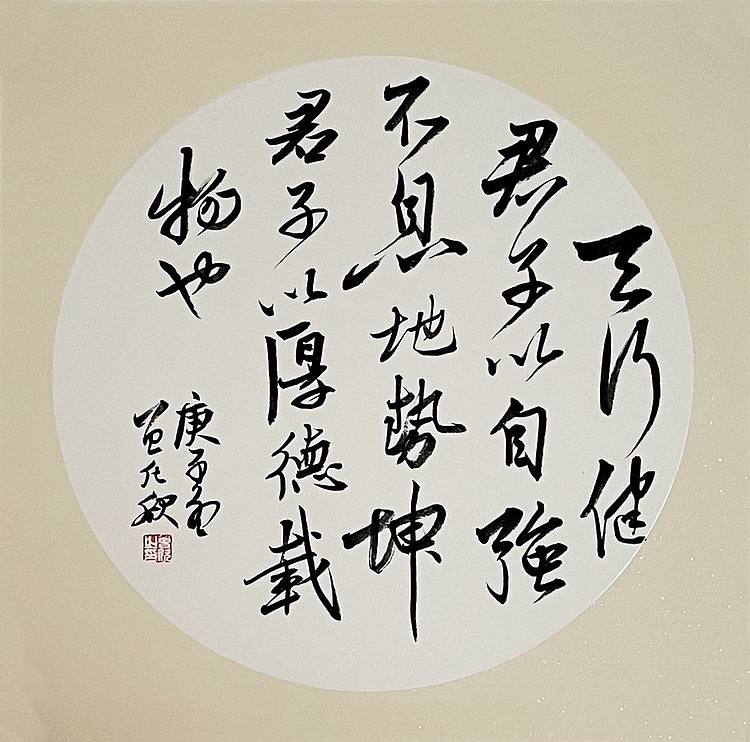 天行健
君子以自強
不息地势坤
君子以厚德載
物也
庚子